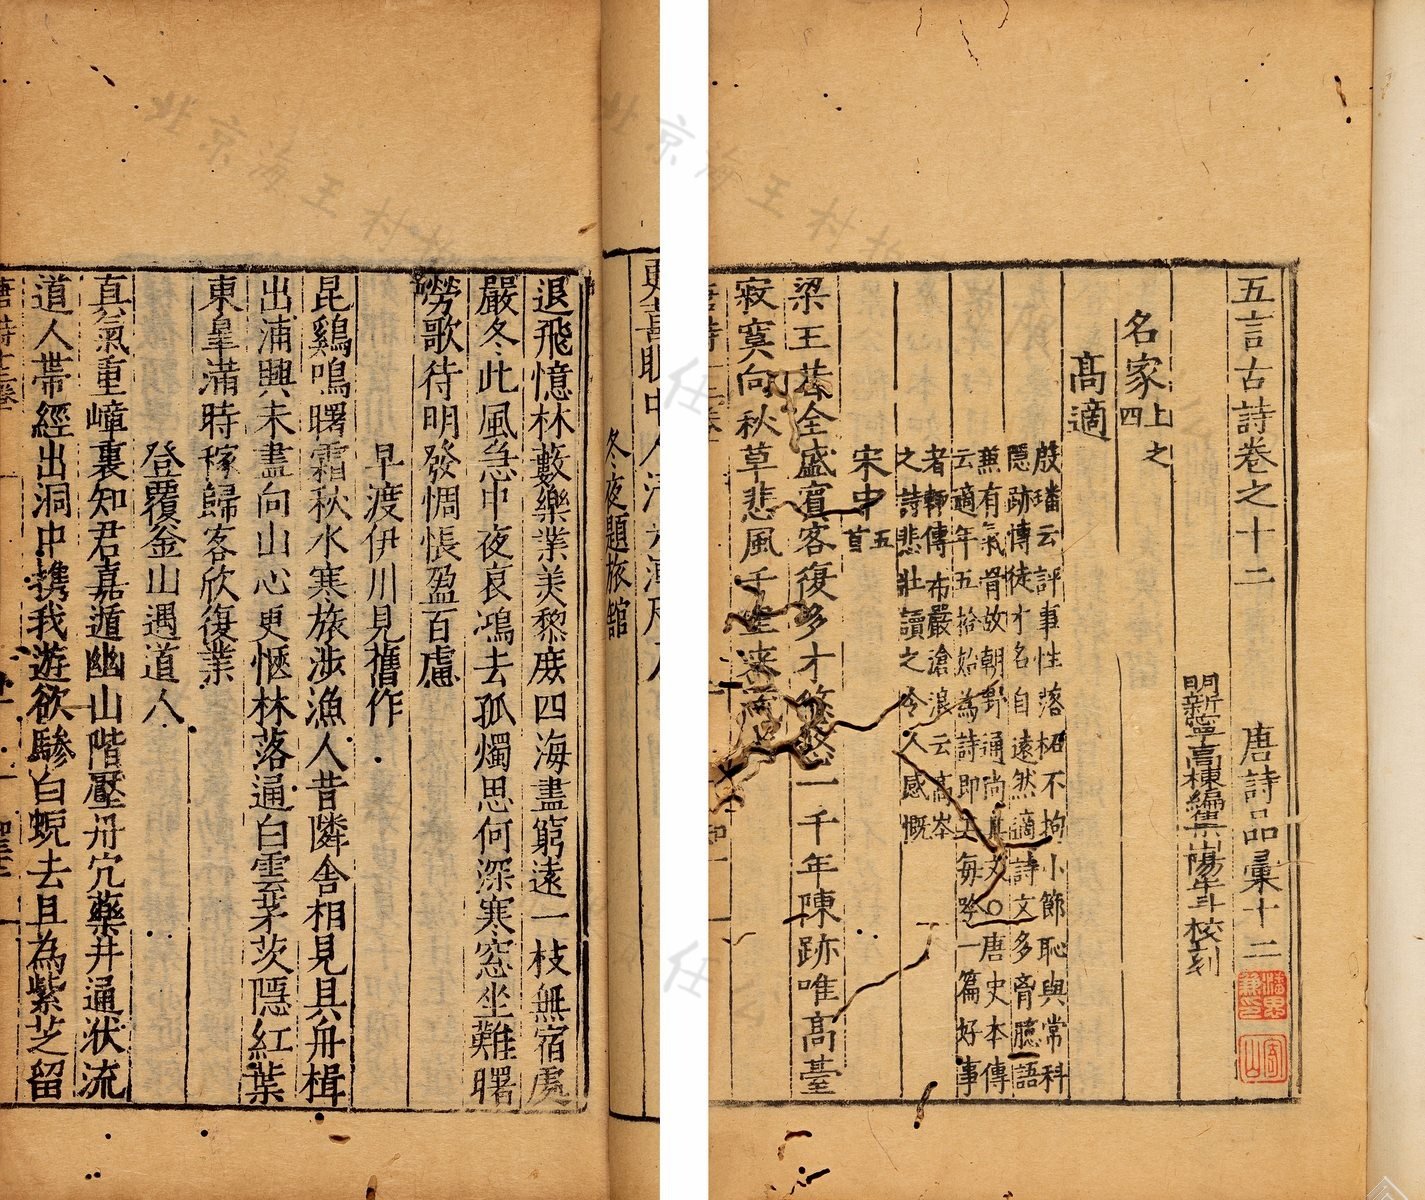 五言古詩卷之十二
唐詩品彙十二
明新寧高棅編
山陽牛斗校刻
名家上之四
高適
殷璠云評事性落柘不拘小節恥與常科
隱跡博徒才名自遠然適詩文多胷臆語
兼有氣骨故朝野通尚其文○唐史本傳
云適年五拾始為詩即工每吟一篇好事
者輒傳布嚴滄浪云高岑
之詩悲壯讀之令人感慨
宋中五首
梁王昔全盛賓客復多才悠悠一千年陳跡唯高臺
寂寞向秋草悲風千里來
唐詩
冬夜題旅舘
退飛憶林藪樂業美黎庶四海盡窮途一枝無宿處
嚴冬此風急中夜哀鴻去孤燭思何深寒窓坐難曙
勞歌待明發惆悵盈百慮
早渡伊川見舊作
昆鷄鳴曙霜秋水寒旅涉漁人昔隣舍相見具舟楫
出浦興未盡向山心更愜林落通白雲茅茨隱紅葉
東皐滿時稼歸客欣復業
登覆釜山遇道人
真氣重嶂裏知君嘉遁幽山階壓丹穴藥井通洑流
道人帶經出洞中携我遊欲驂白蜺去且為紫芝留
北京海王村
北京海王村